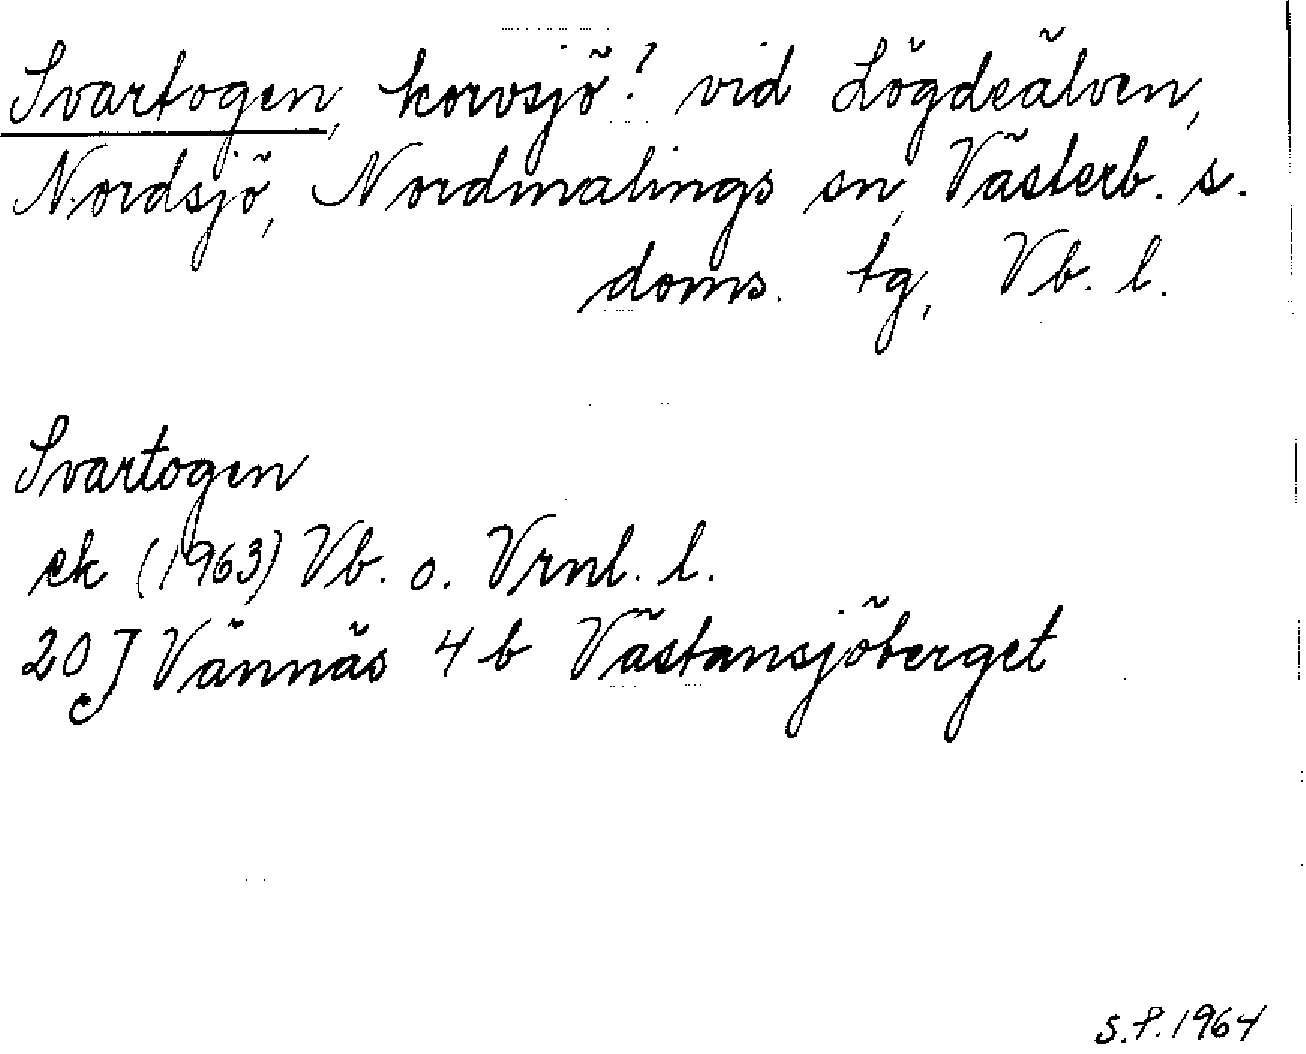 Svartogen, korvsjö? vid Lögdeälven,
Nordsjö, Nordmalings sn, Västerb. s.
doms. tg, Vb. l.
Svartogen
ek (1963) Vb. o. Vrnl. l.
20J Vännäs 4 b Västansjöberget
S.P. 1964